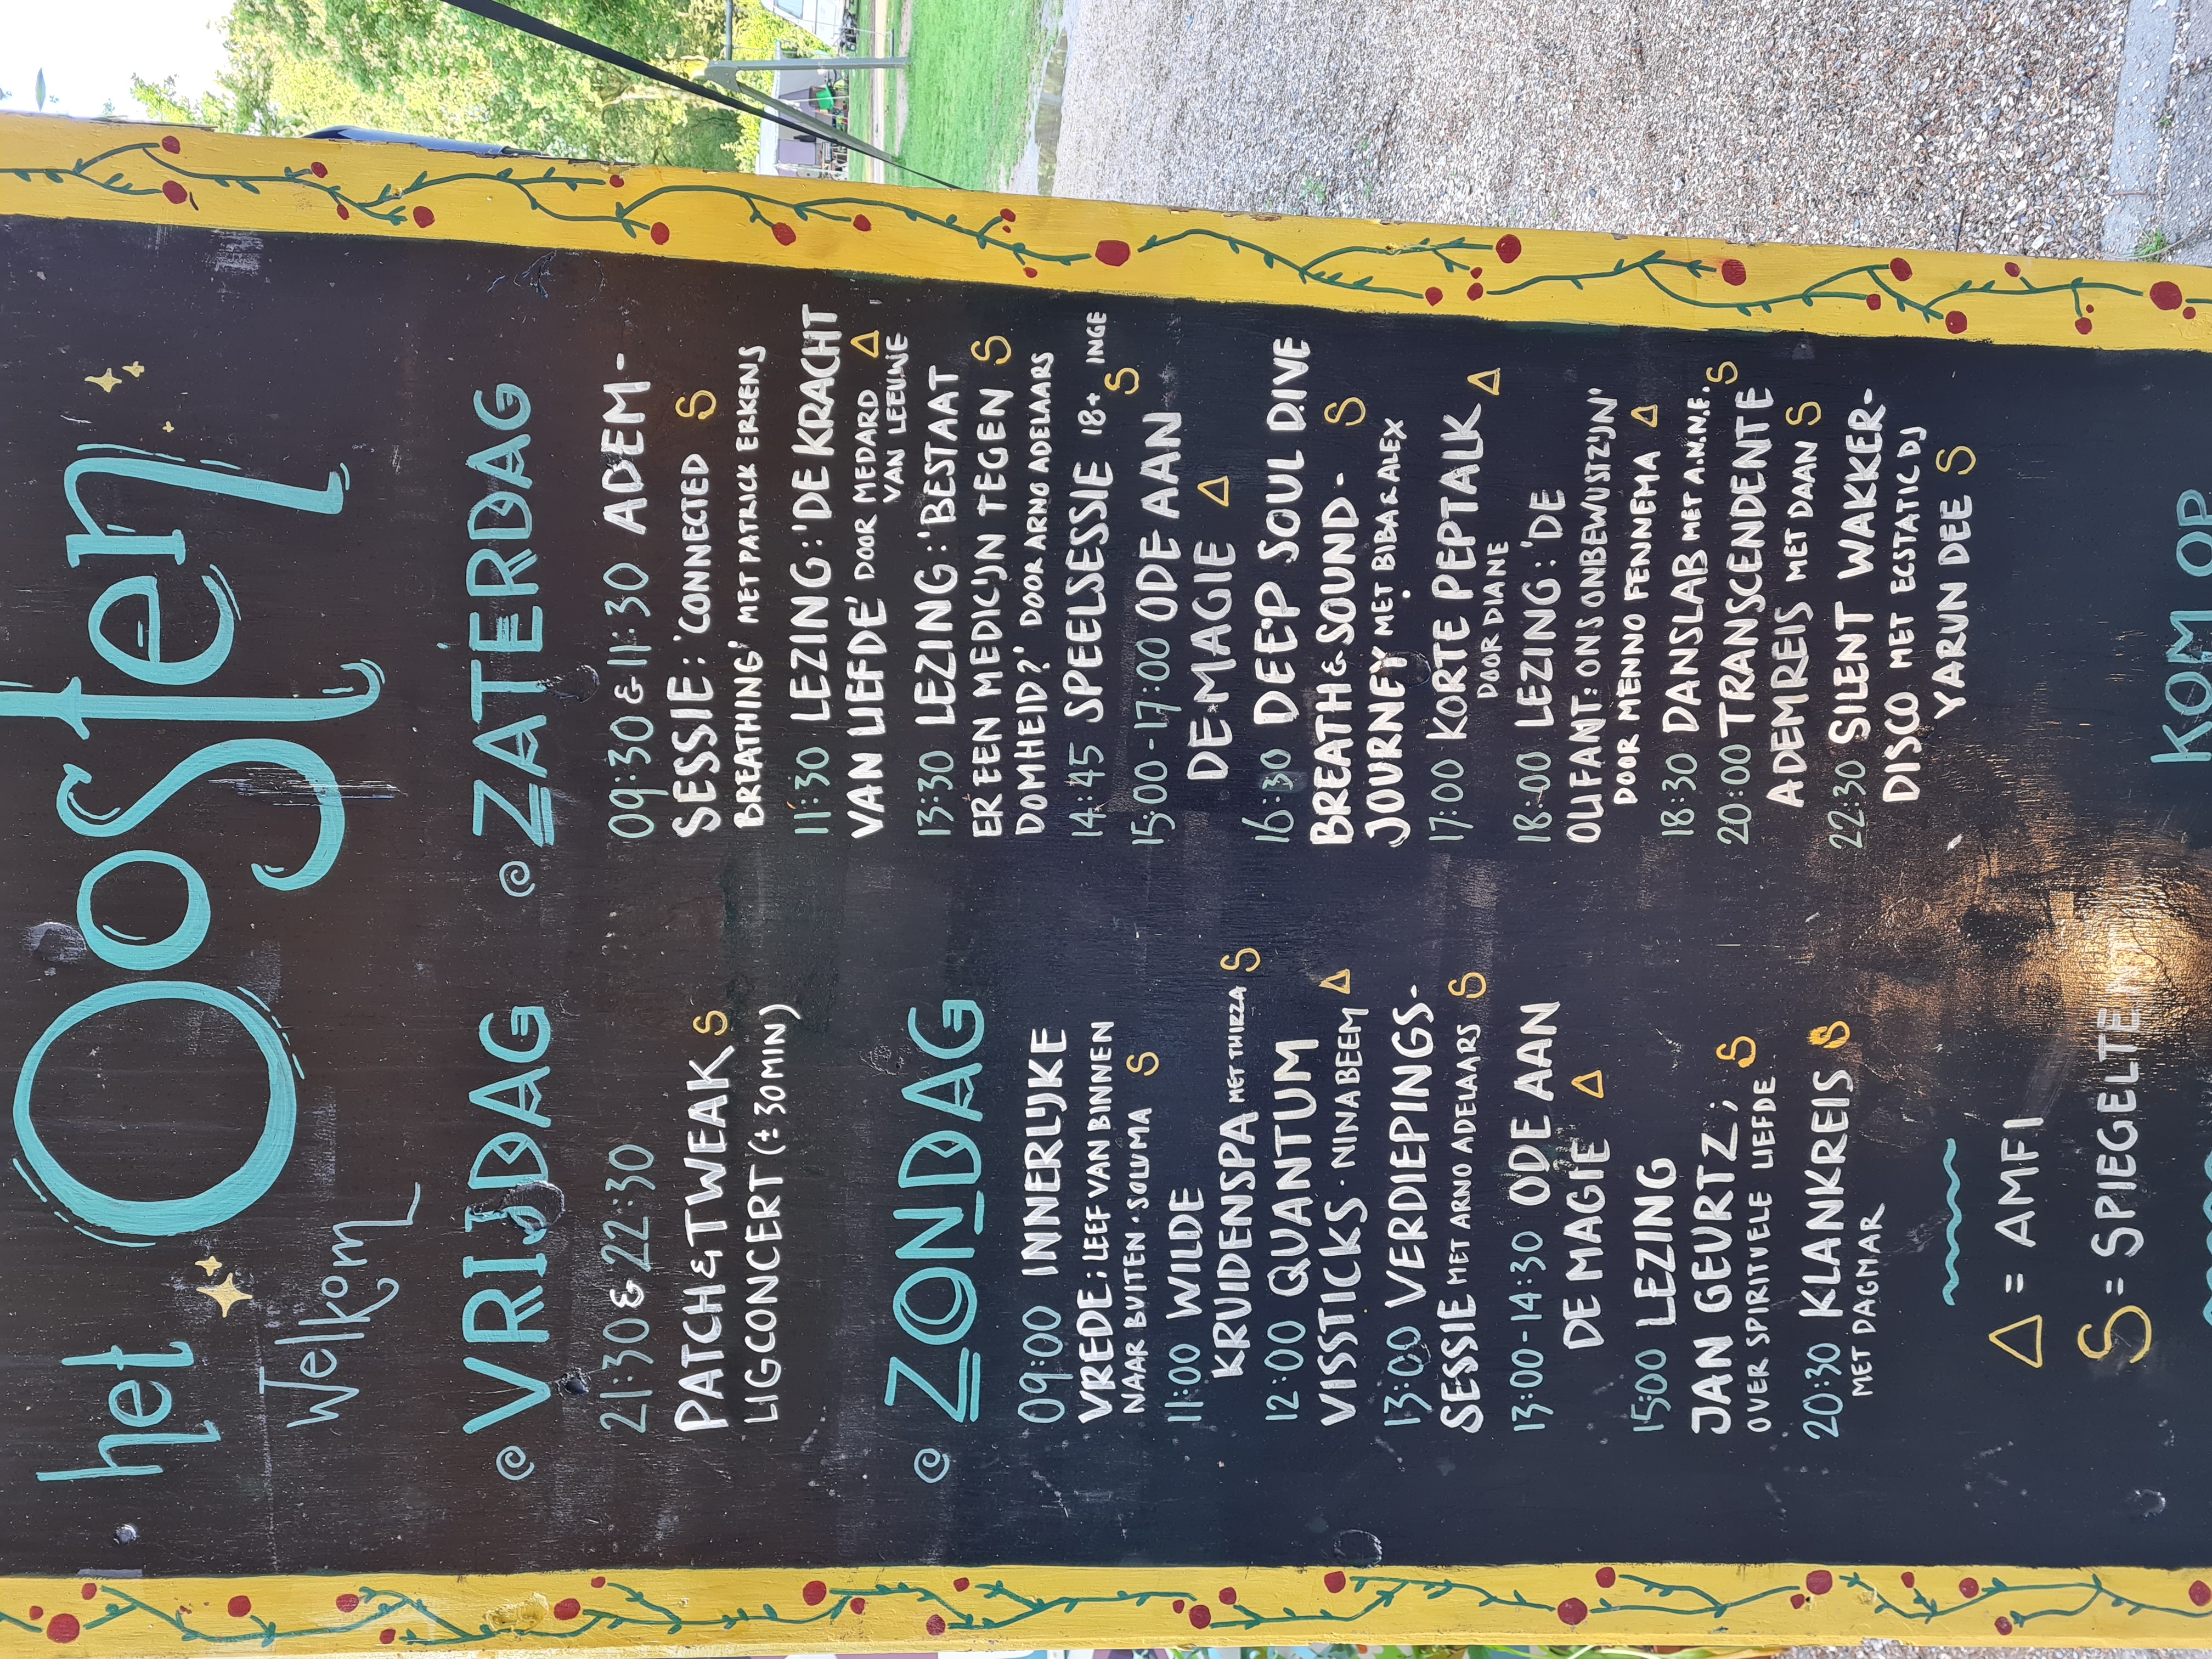 het Oosten
Welkom
VRIJDAG
21:30 & 22:30
PATCH & TWEAK S
LIGCONCERT (± 30 MIN)
ZONDAG
09:00 INNERLIJKE
VREDE; LEEF VAN BINNEN
NAAR BUITEN · SOLUMA S
11:00 WILDE
KRUIDENSPA MET THIRZA S
12:00 QUANTUM
VISSTICKS · NINA BEEM Δ
13:00 VERDIEPINGS-
SESSIE MET ARNO ADELAARS S
13:00-14:30 ODE AAN
DE MAGIE Δ
15:00 LEZING
JAN GEURTZ; S
OVER SPIRITUELE LIEFDE
20:30 KLANKREIS S
MET DAGMAR
Δ = AMFI
S = SPIEGELTENT
ZATERDAG
09:30 & 11:30 ADEM-
SESSIE: 'CONNECTED S
BREATHING' MET PATRICK ERKENS
11:30 LEZING: 'DE KRACHT
VAN LIEFDE' DOOR MEDARD Δ
VAN LEEUWE
13:30 LEZING: 'BESTAAT
ER EEN MEDICIJN TEGEN S
DOMHEID?' DOOR ARNO ADELAARS
14:45 SPEELSESSIE 18+ INGE
S
15:00-17:00 ODE AAN
DE MAGIE Δ
16:30 DEEP SOUL DIVE
BREATH & SOUND- S
JOURNEY MET BIBA & ALEX
17:00 KORTE PEPTALK Δ
DOOR DIANE
18:00 LEZING: 'DE
OLIFANT: ONS ONBEWUSTZIJN'
DOOR MENNO FENNEMA Δ
18:30 DANSLAB MET A.N.N.E. S
20:00 TRANSCENDENTE
ADEMREIS MET DAAN S
22:30 SILENT WAKKER-
DISCO MET ECSTATIC DJ
YARUN DEE S
KOM OP